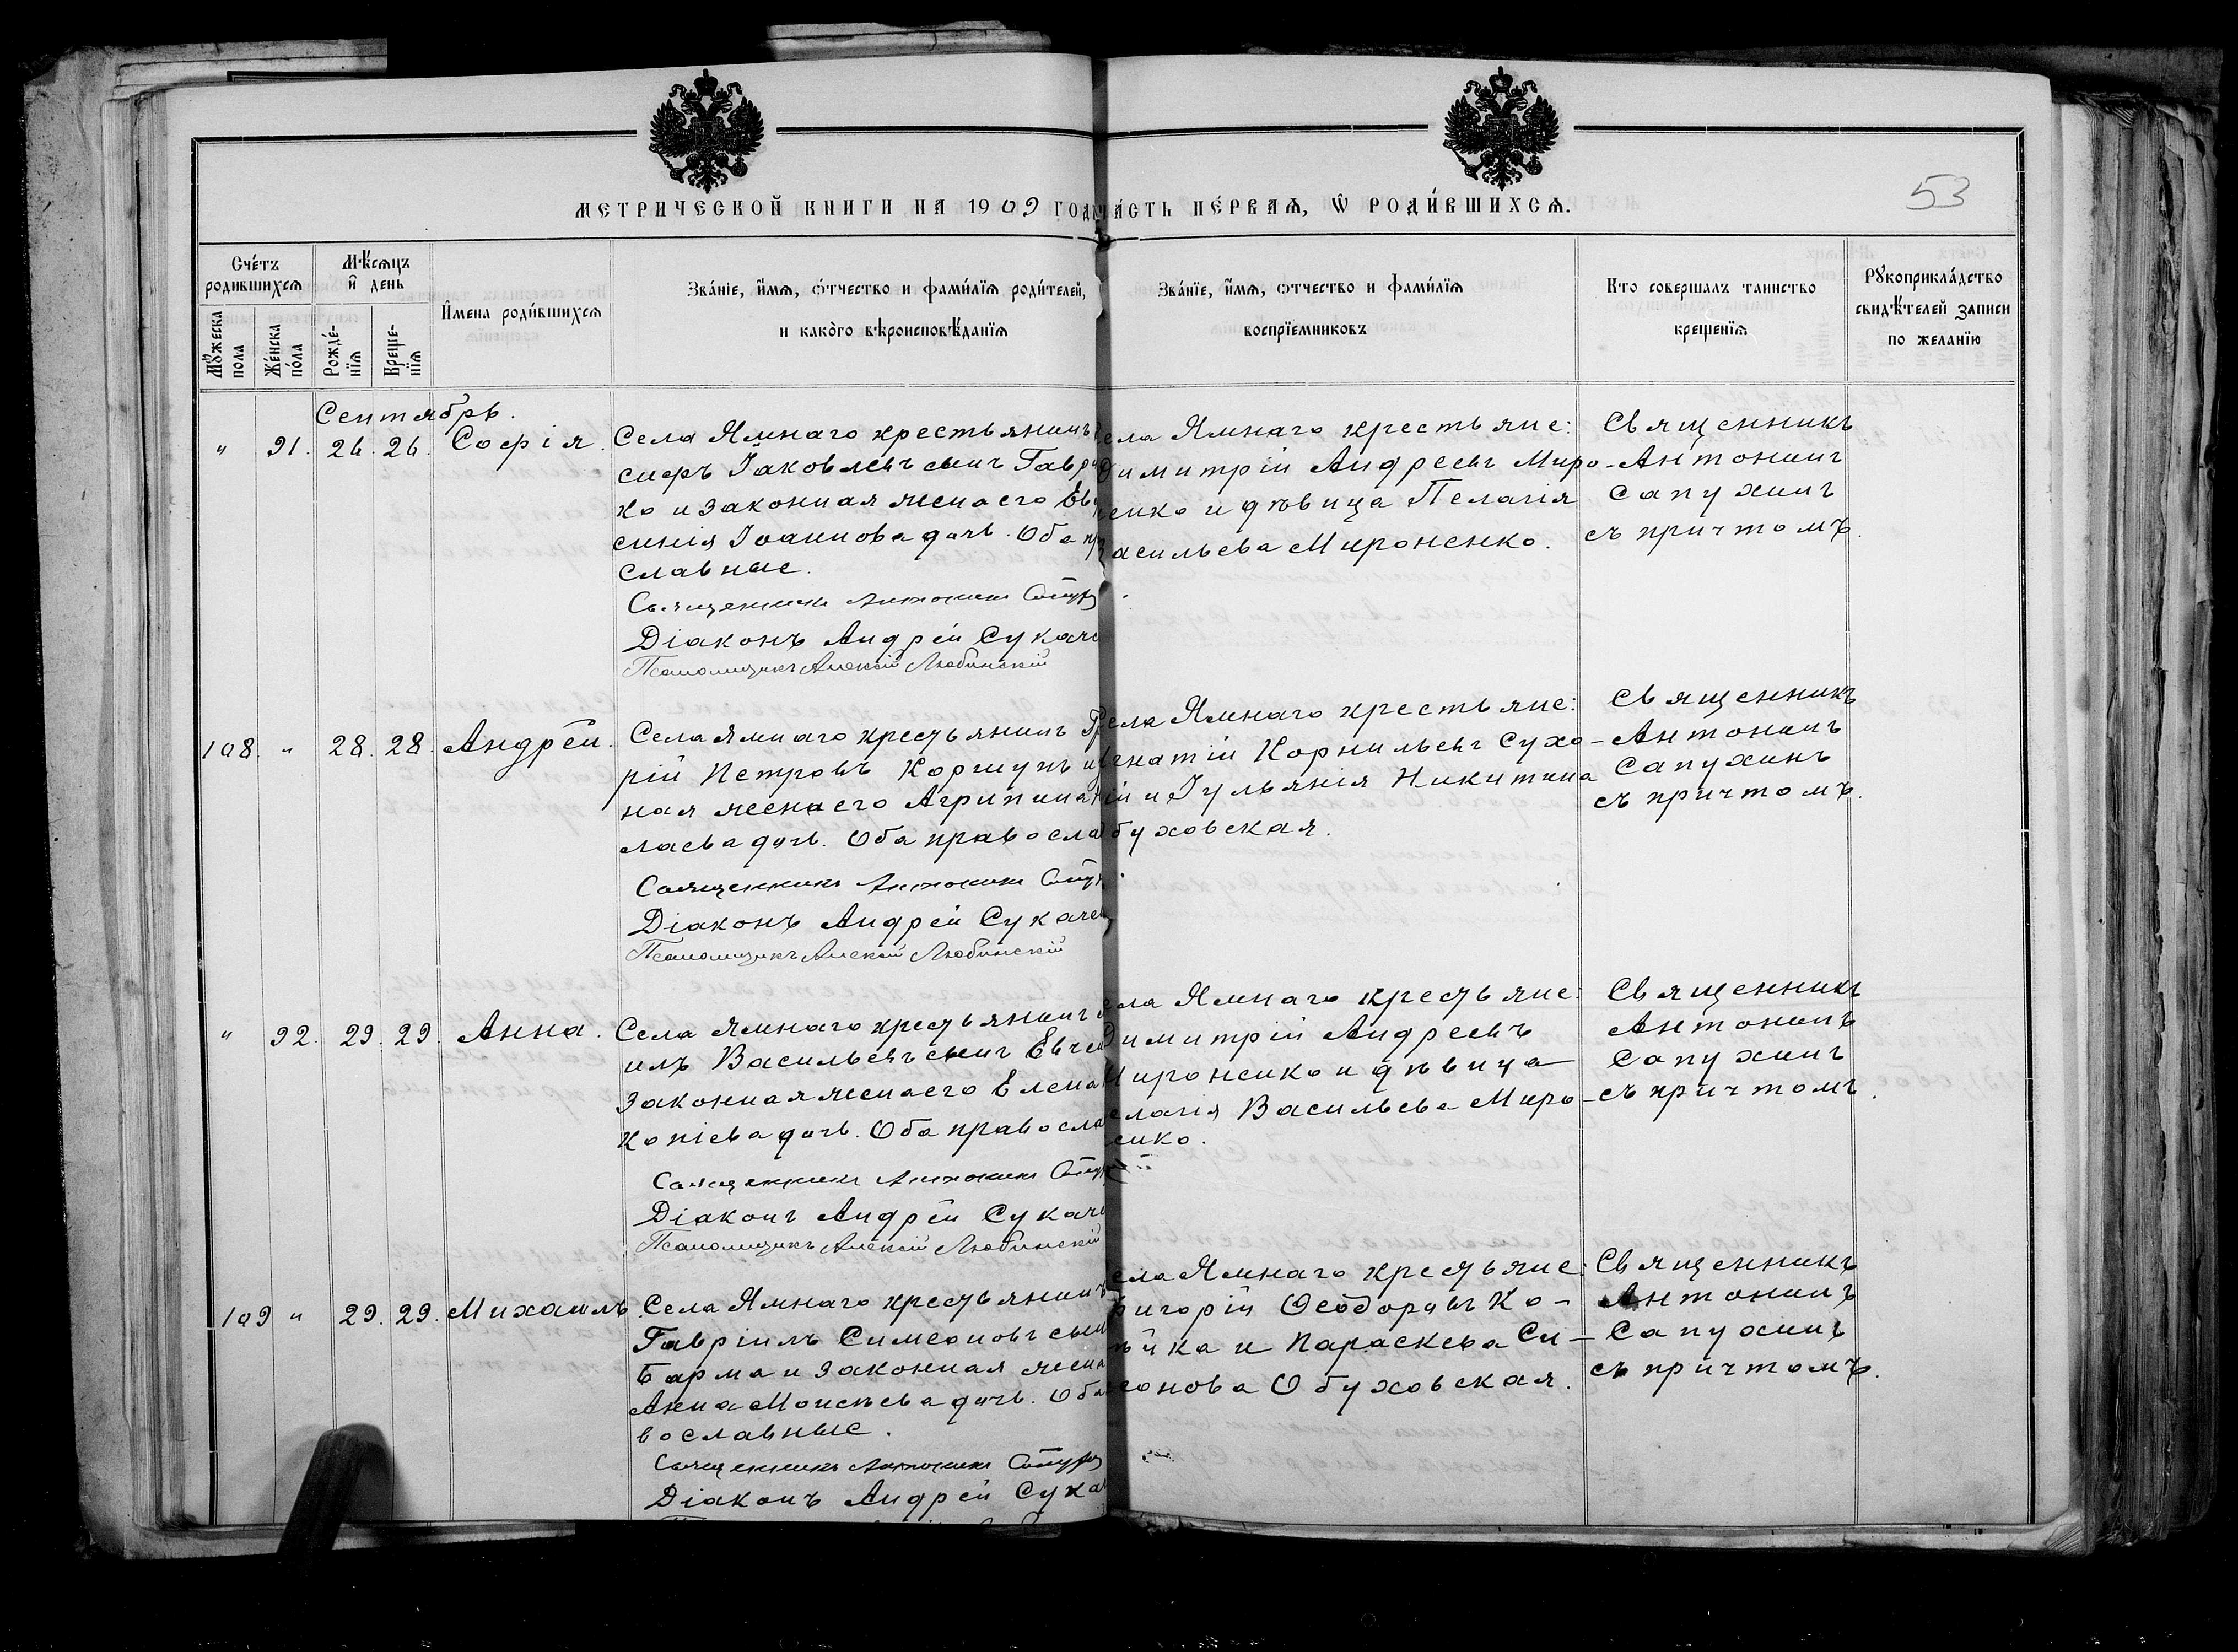 МЕТРИЧЕСКОЙ КНИГИ НА 1909 ГОДЪ
ЧА́СТЬ ПЕ́РВАѦ, Ѡ РОДИ́ВШИХСѦ.
53
Сче́тъ родившихсѧ
Мѣ́сѧцъ и день
Мꙋ́жеска пола
Же́нска по́ла
Рожде́-нїѧ
Креще-нїѧ
И҆мена роди́вшихсѧ
Зва́нїе, и҆́мѧ, ѻ҆́тчество и фами́лїѧ роди́телей,
и како́го вѣроисповѣ́данїѧ
Зва́нїе, и҆́мѧ, ѻтчество и фами́лїѧ
воспрїемниковъ
Кто совершалъ таинство
крещенїѧ
Рꙋкоприкла́дство
свидѣ́телей записи
по желанїю
Сентябрь.
" 91. 26. 26. Софія.
Села Ямнаго крестьянинъ
сифъ Іаковлевъ сынъ Гаври
ко и законная жена его Ев
синія Іоаннова дочь. Оба пр
славные.
Священникъ Антонинъ Сапух
Діаконъ Андрей Сукаче
Псаломщикъ Алексій Любинскій
ела Ямнаго крестьяне:
Димитрій Андреевъ Миро-
енко и дѣвица Пелагія
Васильева Мироненко.
Священникъ
Антонинъ
Сапухинъ
съ причтомъ.
108. " 28. 28. Андрей.
Села Ямнаго крестьянинъ Г
рій Петровъ Коршунъ и
ная жена его Агрипина
лаева дочь. Оба правосла
Священникъ Антонинъ Сапух
Діаконъ Андрей Сукаче
Псаломщикъ Алексій Любинскій
ела Ямнаго крестьяне:
Игнатій Корнильевъ Сухо-
ій и Іульянія Никитина
буховская.
Священникъ
Антонинъ
Сапухинъ
съ причтомъ.
" 92. 29. 29. Анна.
Села Ямнаго крестьянинъ
илъ Васильевъ сынъ Евче
законная жена его Елена
копіева дочь. Оба правосла
Священникъ Антонинъ Сапух
Діаконъ Андрей Сукаче
Псаломщикъ Алексій Любинскій
ела Ямнаго крестьяне:
Димитрій Андреевъ
Мироненко и дѣвица
елагія Васильева Миро-
енко.
Священникъ
Антонинъ
Сапухинъ
съ причтомъ.
109 " 29. 29. Михаилъ.
Села Ямнаго крестьянинъ
Гавріилъ Симеоновъ сын
Барма и законная жена
Анна Моисѣева дочь. Оба
вославные.
Священникъ Антонинъ Сапух
Діаконъ Андрей Сука
ела Ямнаго крестьяне:
ригорій Ѳеодоровъ Ко-
ѣйка и Параскева Си-
еонова Обуховская.
Священникъ
Антонинъ
Сапухинъ
съ причтомъ.